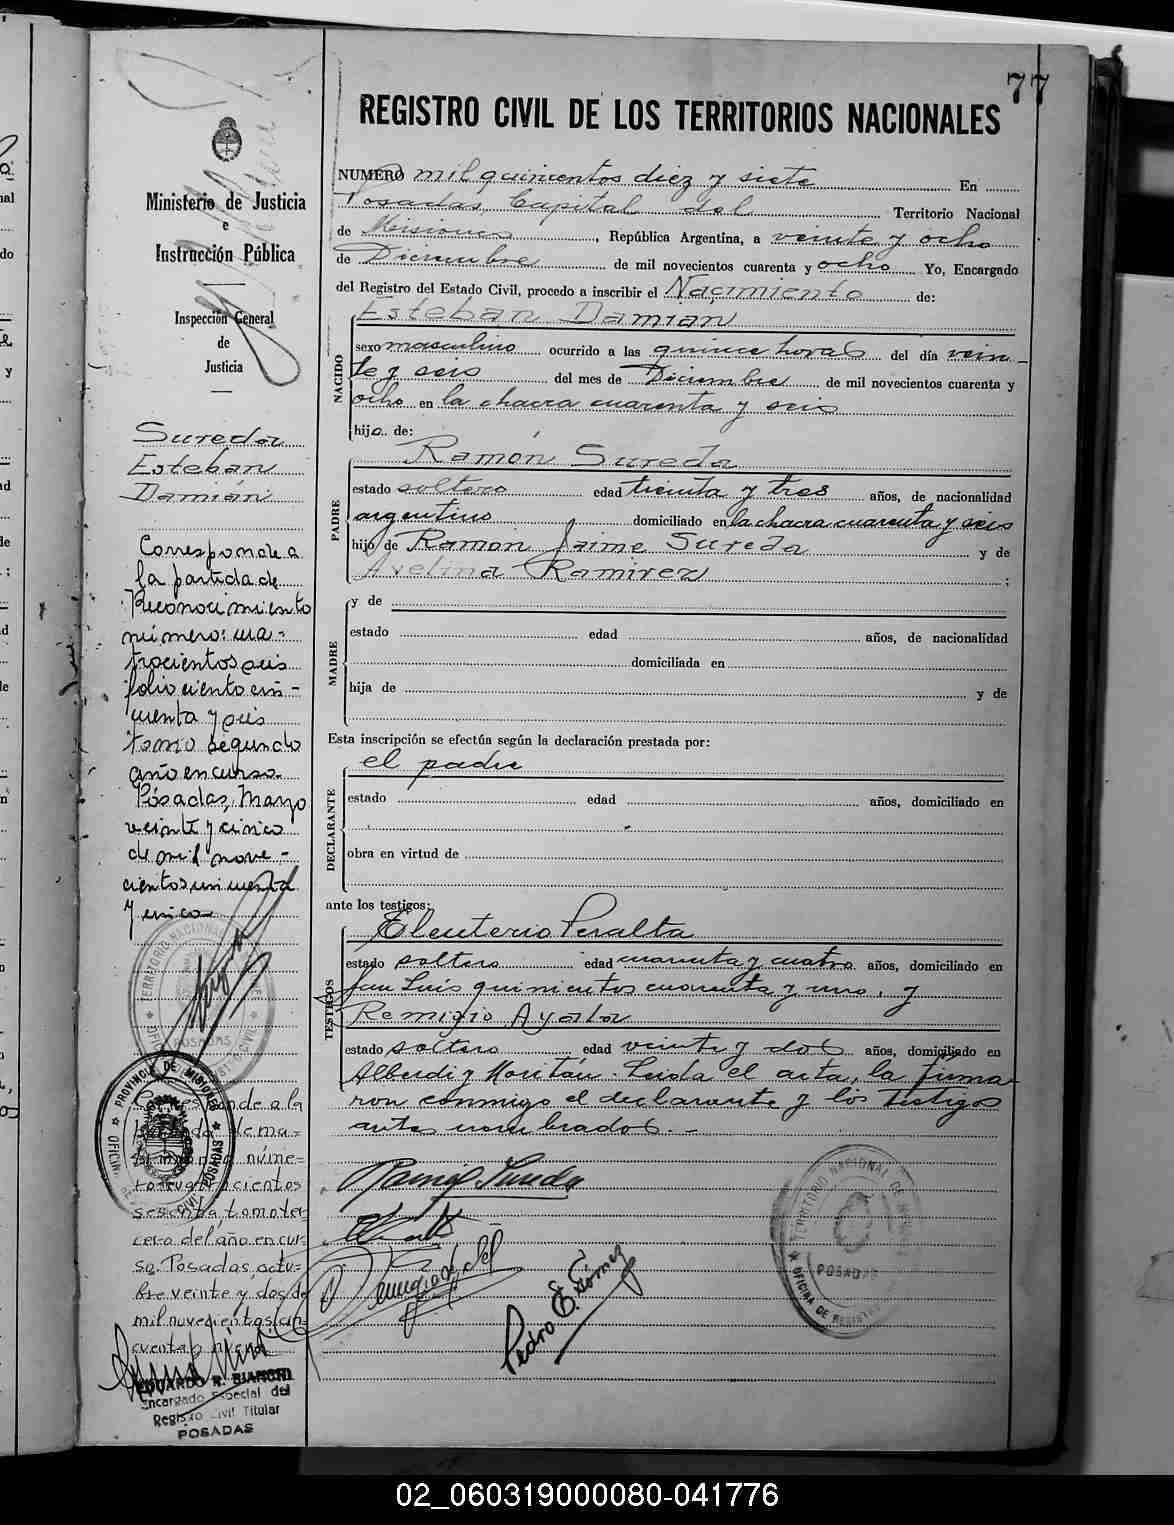 77
REGISTRO CIVIL DE LOS TERRITORIOS NACIONALES
Ministerio de Justicia
e
Instrucción Pública
Inspección General
de
Justicia
Sureda
Esteban
Damián
Corresponde a
la partida de
Reconocimiento
número: cua-
trocientos seis
folio ciento cin-
cuenta y seis
tomo segundo
año en curso.
Posadas, Marzo
veinte y cinco
de mil nove-
cientos cincuenta
y cinco
TERRITORIO NACIONAL DE
POSADAS
PROVINCIA DE MISIONES
POSADAS
Corresponde a la
de ma-
núme-
ro cuatrocientos
sesenta, tomo ter-
cero del año en cur-
so. Posadas, octu-
bre veinte y dos de
mil novecientos cin-
cuenta y nueve
EDUARDO R. BIANCHI
Encargado Especial del
Registro Civil Titular
POSADAS
NUMERO mil quinientos diez y siete En
Posadas, Capital del Territorio Nacional
de Misiones, República Argentina, a veinte y ocho
de Diciembre de mil novecientos cuarenta y ocho Yo, Encargado
del Registro del Estado Civil, procedo a inscribir el Nacimiento de:
NACIDO
Esteban Damián
sexo masculino ocurrido a las quince horas del día vein-
te y seis del mes de Diciembre de mil novecientos cuarenta y
ocho en la chacra cuarenta y seis
hijo de:
PADRE
Ramón Sureda
estado soltero edad treinta y tres años, de nacionalidad
argentino domiciliado en la chacra cuarenta y seis
hijo de Ramon Jaime Sureda y de
Avelina Ramirez;
MADRE
y de
estado edad años, de nacionalidad
domiciliada en
hija de y de
Esta inscripción se efectúa según la declaración prestada por:
DECLARANTE
el padre
estado edad años, domiciliado en
obra en virtud de
ante los testigos:
TESTIGOS
Eleuterio Peralta
estado soltero edad cuarenta y cuatro años, domiciliado en
San Luis quinientos cuarenta y uno, y
Remigio Ayala
estado soltero edad veinte y dos años, domiciliado en
Alberdi y Moritán. Leída el acta, la firma-
ron conmigo el declarante y los testigos
antes nombrados.-
Ramón Sureda
Pedro E. Gómez
TERRITORIO NACIONAL DE MISIONES
POSADAS
OFICINA DE REGISTRO
02_060319000080-041776